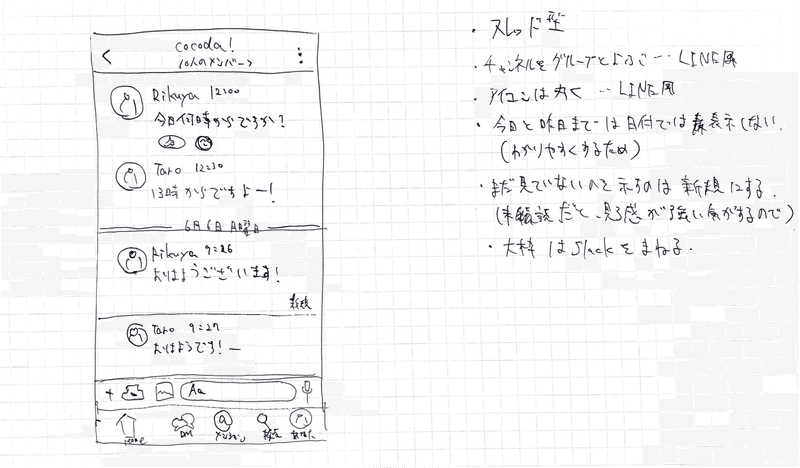 cocoda!
10人のメンバー >
Rikuya 12:00
今日何時からですか?
Taro 12:30
13時からですよー!
6月6日 月曜日
Rikuya 9:26
おはようございます!
新規
Taro 9:27
おはようです!ー
+ Aa
Home DM @ メンション 検索 あなた
・スレッド型
・チャンネルをグループとよぶ … LINE風
・アイコンは丸く … LINE風
・今日と昨日までは日付では表示しない.
(わかりやすくするため)
・まだ見ていないのを示すのは新規にする.
(未読だと、見る感が強い気がするので)
・大枠はSlackをまねる.